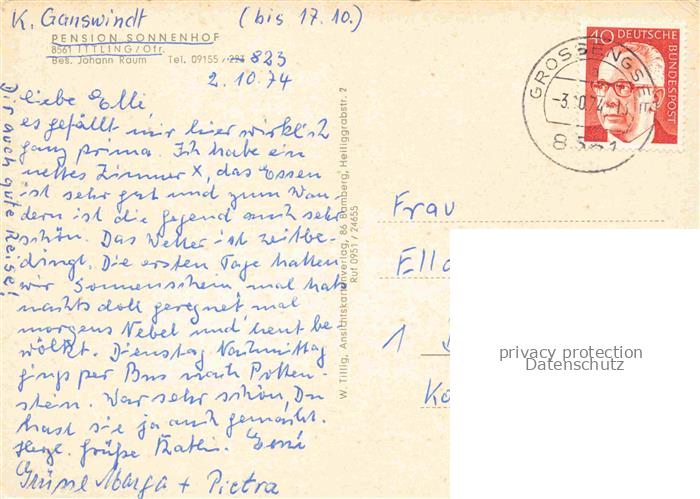 K. Ganswindt (bis 17.10.)
PENSION SONNENHOF
8561 ITTLING/Ofr.
Bes. Johann Raum Tel. 09155/293 823
2.10.74
Liebe Elli,
es gefällt mir hier wirklich
ganz prima. Ich habe ein
nettes Zimmer x, das Essen
ist sehr gut und zum Wan-
dern ist die Gegend auch sehr
schön. Das Wetter ist zeitbe-
dingt. Die ersten Tage hatten
wir Sonnenschein, mal hat
nachts doll geregnet mal
morgens Nebel und heut be-
wölkt. Dienstag Nachmittag
gings per Bus nach Potten-
stein. War sehr schön, Du
hast sie ja auch gemacht.
Herzl. Grüße Kathi.
Grüsse Marga + Pietra
Dir auch gute Reise!
W. Tillig, Ansichtskartenverlag, 86 Bamberg, Heiliggrabstr. 2
Ruf 0951 / 24655
40 DEUTSCHE
BUNDESPOST
GROSSENGSE
-3.10.74
8561
Frau
Ella
1
privacy protection
Datenschutz